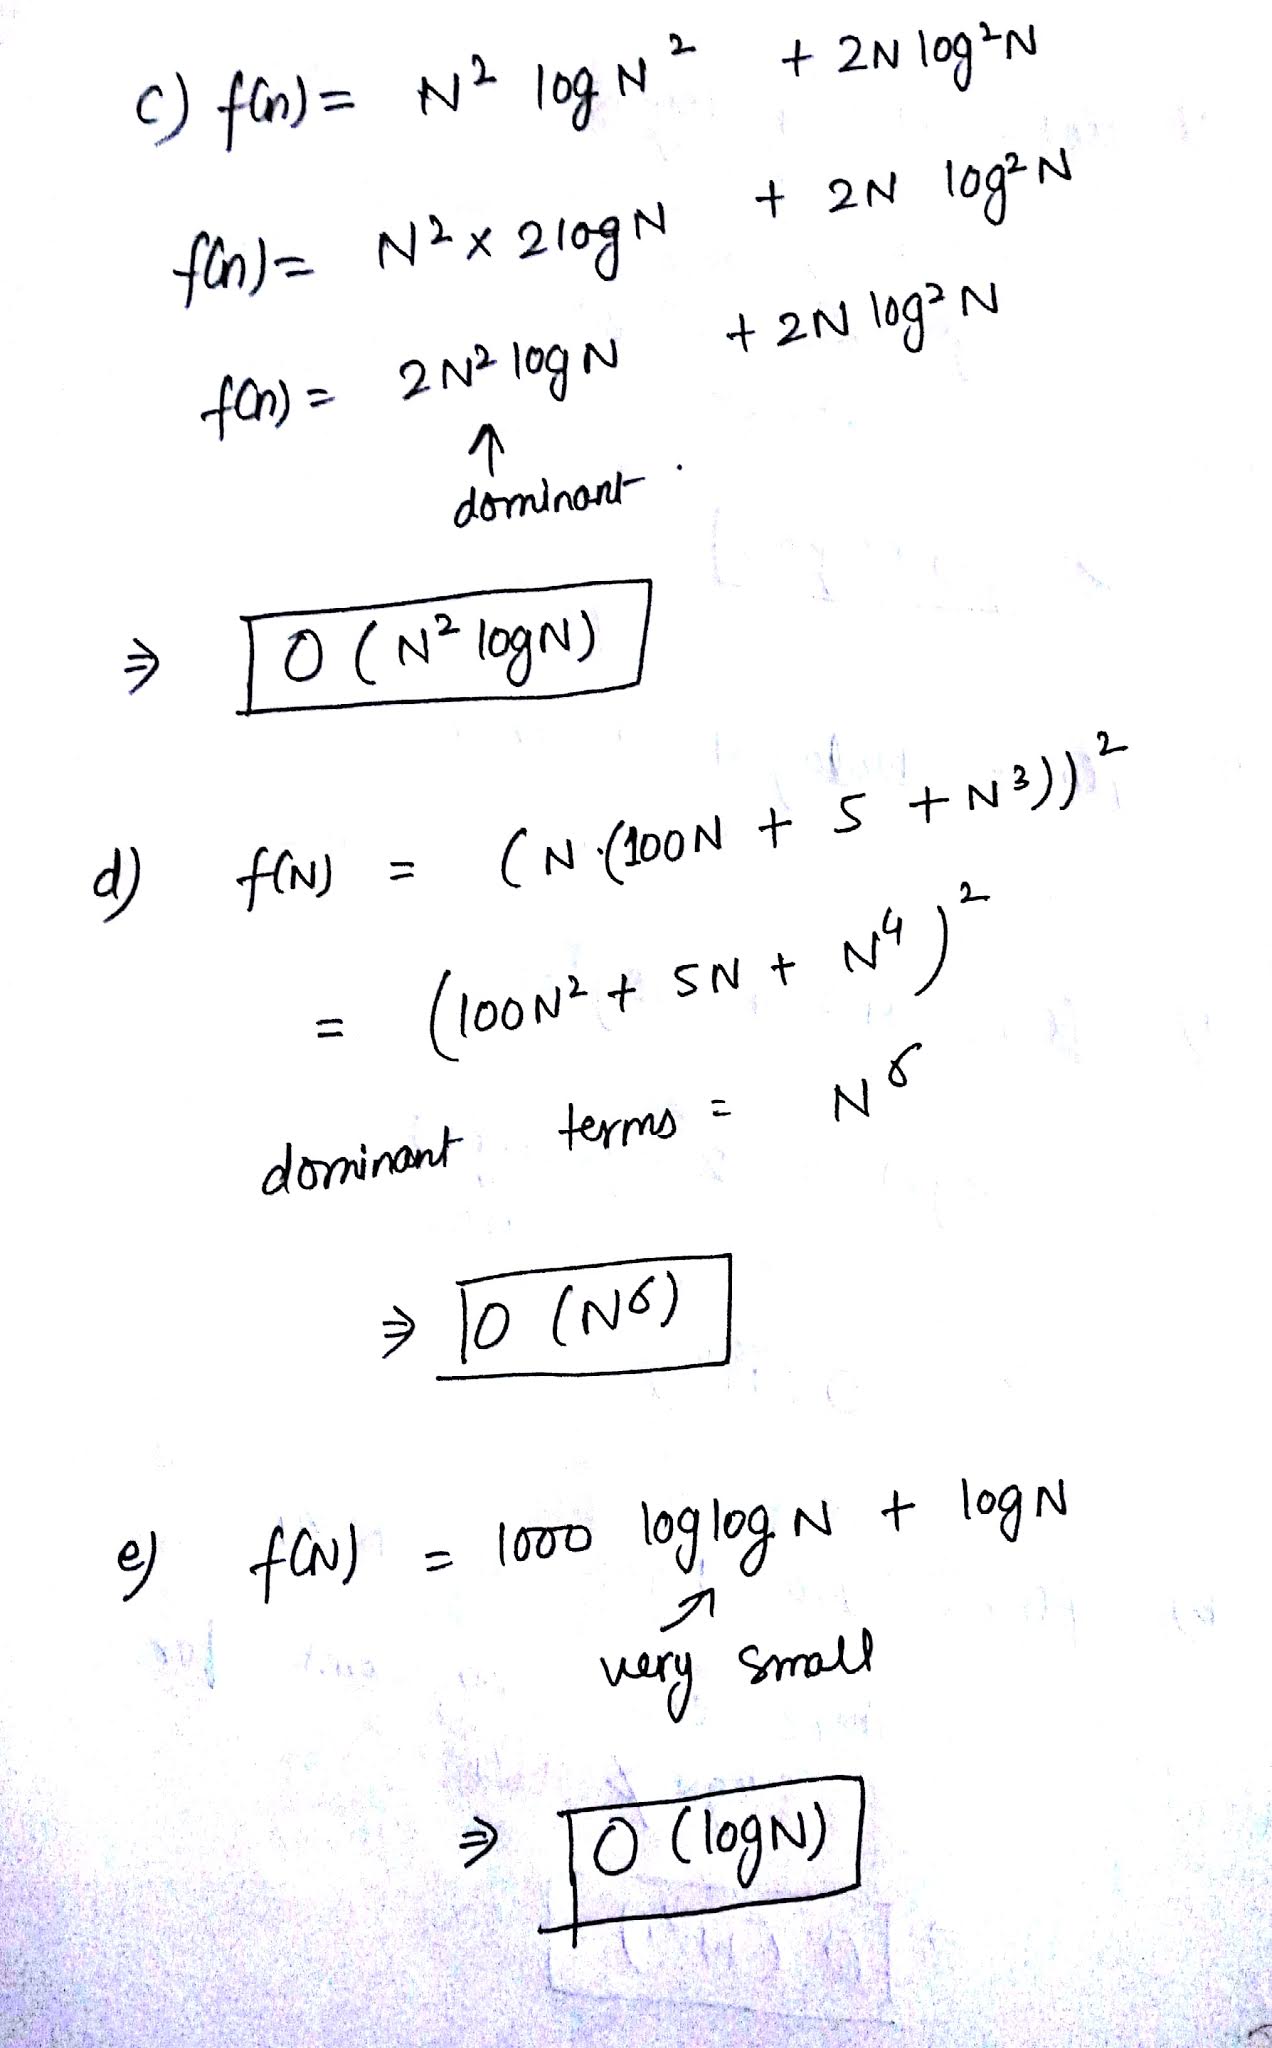 c) f(n) = N² log N² + 2N log²N
f(n) = N² x 2 log N + 2N log²N
f(n) = 2N² log N + 2N log²N
↑
dominant.
⇒ O (N² log N)
d) f(N) = (N.(100N + 5 + N³))²
= (100N² + 5N + N⁴)²
dominant terms = N⁸
⇒ O (N⁸)
e) f(N) = 1000 log log N + log N
↗
very small
⇒ O (log N)